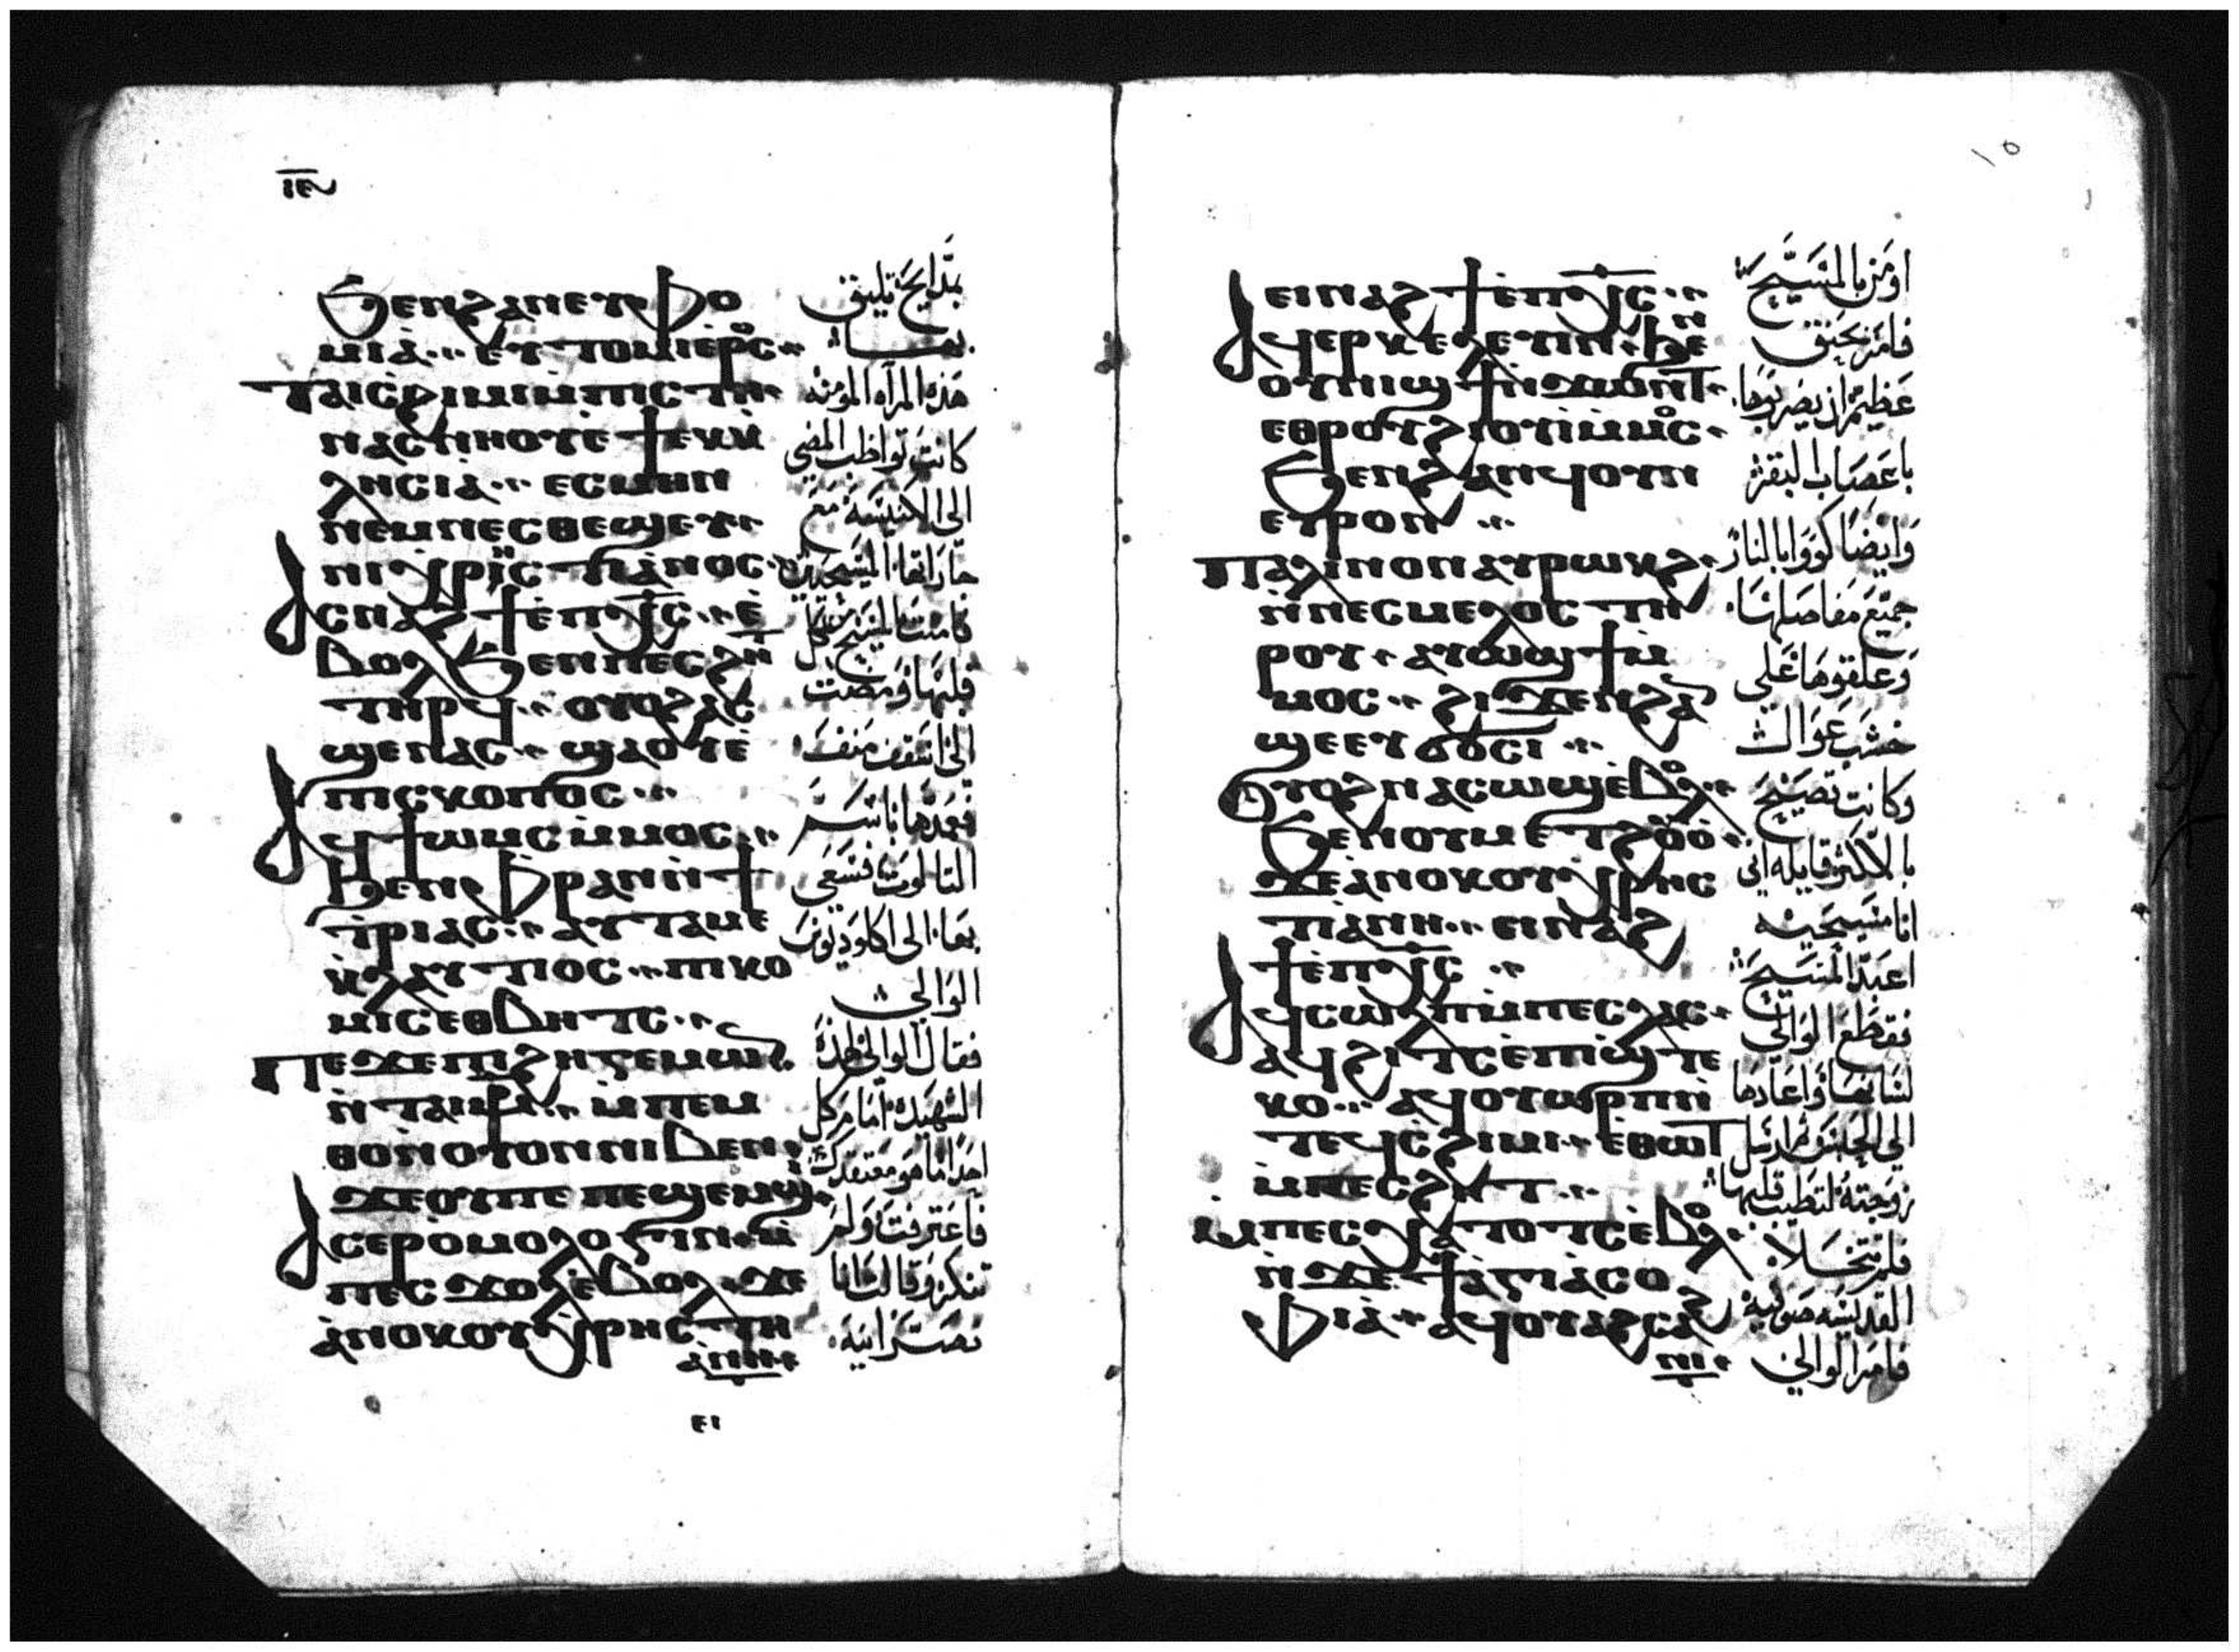 ⲓⲉ
ϧⲉⲛϩⲁⲛⲉⲩⲫⲟ
ⲙⲓⲁ̀ ⲉⲩⲧⲟⲙⲓⲉ̀ⲣⲟⲥ
ⲧⲁⲓⲥϩⲓⲙⲓⲙ̀ⲡⲓⲥⲧⲏ
ⲛⲁⲥⲙⲏⲛⲟⲩⲧⲉ̀ϯⲉⲕⲕ
ⲗⲏⲥⲓⲁ ⲉⲥⲙⲏⲛ
ⲛⲉⲙⲛⲉⲥⲑⲉϣⲉⲩ
ⲛⲓⲭⲣⲓⲥⲧⲓⲁⲛⲟⲥ
ⲁⲥⲛⲁϩϯⲉ̀ⲡⲭⲥ ⲉ̀
ⲃⲟⲗϧⲉⲛⲡⲉⲥϩⲏⲧ
ⲧⲏⲣϥ ⲟⲩⲟϩⲁⲥ
ϣⲉⲛⲁⲥ ϣⲁⲟⲩⲉ̀
ⲡⲓⲥⲕⲟⲡⲟⲥ
ⲁϥϯⲱⲙⲥⲙ̀ⲙⲟⲥ
ϧⲉⲛⲫⲣⲁⲛⲛ̀ϯ
ⲧⲣⲓⲁⲥ ⲁⲩⲧⲁⲙⲉ
ⲕ̀ⲗⲁⲩⲧⲓⲟⲥ ⲡⲓⲕⲟ
ⲙⲓⲥⲉⲑⲃⲏⲧⲥ
ⲡⲉϫⲉⲡⲓϩⲏⲅⲉⲙⲱⲛ
ⲛ̀ⲧⲁⲓⲙⲣ ⲙ̀ⲡⲉⲙ
ⲑⲟⲛ̀ⲟⲩⲟⲛⲛⲓⲃⲉⲛ
ϫⲉⲟⲩⲡⲉ ⲡⲉϣⲉⲙϣ
ⲁⲥⲉⲣⲟ̀ⲙⲟⲗⲟⲅⲓⲛ ⲙ̀
ⲡⲉⲥϫⲟⲗⲉ̀ⲃⲟⲗ ϫⲉ
ⲁ̀ⲛⲟⲕⲟⲩⲭⲣⲏⲥⲧⲏ
ⲁⲛⲏ
ⲉⲓ
هذه المرآه المومنه
كانت تواظب المضي
الى الكنيسه مع
جاراتها المسيحيين
فامنت بالمسيح من كل
قلبها ومضت
الى اسقف منف
فعمدها باسم
التالوت فسعى
بها الى اكلوديوس
الوالي
فقال الوالي لهذه
الشهيده اما من كل
احد اما هو معتقدك
فاعترفت ولم
تنكر وقالت انا
نصرانيه
١٥
ⲉⲓⲛⲁϩϯⲉ̀ⲡⲭⲥ
ⲁϥⲉⲣⲕⲉⲗⲉⲩⲓⲛ ϧⲉⲛ
ⲟⲩⲛⲓϣϯⲛ̀ϫⲱⲛⲧ
ⲉⲑⲣⲟⲩϩⲓⲟⲩⲓⲙ̀ⲙⲟⲥ
ϧⲉⲛϩⲁⲛϥⲟⲩⲛ
ⲉⲩⲣⲟⲛ
ⲡⲁⲗⲓⲛⲟⲛⲁⲩⲣⲱⲕϩ
ⲛ̀ⲛⲉⲥⲙⲉⲗⲟⲥⲧⲏ
ⲣⲟⲩ ⲁⲩⲱϣϯⲙ̀
ⲙⲟⲥ ϩⲓϫⲉⲛϩⲁⲛ
ϣⲉⲉⲩϭⲟⲥⲓ
ⲟⲩⲟϩⲛⲁⲥⲱϣⲉ̀ⲃⲟⲗ
ϧⲉⲛⲟⲩⲙⲉⲧϩⲟⲩⲟ̀
ϫⲉⲁⲛⲟⲕⲟⲩⲭⲣⲏⲥ
ⲧⲓⲁⲛⲏ ⲉⲓⲛⲁϩ
ϯⲉ̀ⲡⲭⲥ
ⲁϥⲥⲱⲗⲡⲙ̀ⲡⲉⲥⲗⲁⲥ
ⲁϥϩⲓⲧⲥⲉ̀ⲡⲓϣⲧⲉ
ⲕⲟ ⲁϥⲟⲩⲱⲣⲡⲛ̀
ⲧⲉϥⲥϩⲓⲙⲓ ⲉⲑⲱⲧ
ⲙ̀ⲡⲉⲥϩⲏⲧ
ⲙ̀ⲡⲉⲥⲭⲁⲧⲟⲧⲥⲉ̀ⲃⲟⲗ
ⲛ̀ϫⲉϯⲁ̀ⲅⲓⲁⲥⲟ
ⲫⲓⲁ̀ ⲁϥⲟⲩⲁϩⲥⲁϩ
ⲛⲓ
اومن بالمسيح
فامر بحنق
عظيم ان يضربوها
باعصاب البقر
وايضا كووا بالنار
جميع مفاصلها
وعلقوها على
خشب عوال
وكانت تصيح
بالاكثر قايله اني
انا مسيحيه
اعبد المسيح
فقطع الوالي
لسانها واعادها
الى الحبس ثم ارسل
زوجته لتطيب قلبها
فلم تتخلا
القديسه صوفيه
فامر الوالي